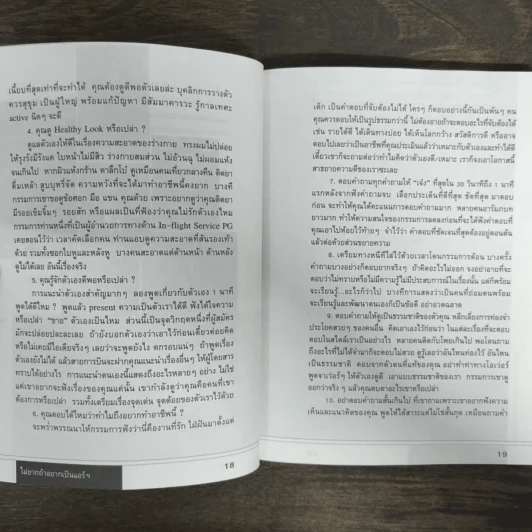 เนี้ยบที่สุดเท่าที่จะทำได้ คุณต้องดูดีพอตัวเลยล่ะ บุคลิกการวางตัว
ควรสุขุม เป็นผู้ใหญ่ พร้อมแก้ปัญหา มีสัมมาคารวะ รู้กาลเทศะ
active นิดๆ จะดี
4. คุณดู Healthy Look หรือเปล่า ?
ดูแลตัวเองให้ดีในเรื่องความสะอาดของร่างกาย ทรงผมไม่ปล่อย
ให้รุงรังมีรังแค ใบหน้าไม่มีสิว ร่างกายสมส่วน ไม่อ้วนฉุ ไม่ผอมแห้ง
จนเกินไป หากผิวแห้งกร้าน ตาลึกโบ๋ ดูเหมือนคนเที่ยวกลางคืน ติดยา
ดื่มเหล้า สูบบุหรี่จัด ความหวังที่จะได้มาทำอาชีพนี้คงยาก บางที
กรรมการเขาขอดูข้อศอก มือ แขน คุณด้วย เพราะอยากดูว่าคุณติดยา
มีรอยเข็มจิ้มๆ รอยสัก หรือแผลเป็นที่ฟ้องว่าคุณไม่รักตัวเองไหม
กรรมการท่านหนึ่งที่เป็นผู้อำนวยการทางด้าน In-flight Service PG
เคยสอนไว้ว่า เวลาคัดเลือกคน ท่านแอบดูความสะอาดที่ส้นรองเท้า
ด้วย รวมทั้งซอกใบหูและหลังหู บางคนสะอาดแต่ด้านหน้า ด้านหลัง
ดูไม่ได้เลย อันนี้เรื่องจริง
5. คุณรู้จักตัวเองดีพอหรือเปล่า ?
การแนะนำตัวเองสำคัญมากๆ ลองพูดเกี่ยวกับตัวเอง 1 นาที
พูดได้ดีไหม ? พูดแล้ว present ความเป็นตัวเราได้ดี ฟังได้ใจความ
หรือเปล่า "ขาย" ตัวเองเป็นไหม ส่วนนี้เป็นจุดวิกฤตหนึ่งที่ผู้สมัคร
มักจะปล่อยปละละเลย ถ้ายังบอกตัวเองว่าเอาไว้ก่อนเดี๋ยวค่อยคิด
หรือไม่เคยมีไอเดียจริงๆ เลยว่าจะพูดยังไง ตกรอบแน่ๆ ถ้าพูดเรื่อง
ตัวเองยังไม่ได้ แล้วสายการบินจะฝากคุณแนะนำเรื่องอื่นๆ ให้ผู้โดยสาร
ทราบได้อย่างไร การแนะนำตนเองนี้แสดงถึงอะไรหลายๆ อย่าง ไม่ใช่
แค่เขาอยากจะฟังเรื่องของคุณแค่นั้น เขากำลังดูว่าคุณคือคนที่เขา
ต้องการหรือเปล่า รวมทั้งเตรียมเรื่องจุดเด่น จุดด้อยของตัวเราไว้ด้วย
6. คุณตอบได้ไหมว่าทำไมถึงอยากทำอาชีพนี้ ?
จะพร่ำพรรณนาให้กรรมการฟังว่านี่คืองานที่รัก ใฝ่ฝันมาตั้งแต่
ไม่ยากถ้าอยากเป็นแอร์ฯ
18
เด็ก เป็นคำตอบที่จับต้องไม่ได้ ใครๆ ก็ตอบอย่างนี้กันเป็นพันๆ คน
คุณควรตอบให้เป็นรูปธรรมกว่านี้ ไม่ต้องอายถ้าจะตอบอะไรที่จับต้องได้
เช่น รายได้ดี ได้เดินทางบ่อย ได้เห็นโลกกว้าง สวัสดิการดี หรืออาจ
ตอบไปเลยว่าเป็นอาชีพที่คุณประเมินแล้วว่าเหมาะกับตัวเองและทำได้ดี
เดี๋ยวเขาก็จะถามต่อว่าทำไมคิดว่าตัวเองดี/เหมาะ เราก็จะเอาโอกาสนี้
สาธยายความดีของเราซะเลย
7. ตอบคำถามทุกคำถามให้ "เจ๋ง" ที่สุดใน 30 วินาทีถึง 1 นาที
แรกหลังจากฟังคำถามจบ เลือกประเด็นที่ดีที่สุด ชัดที่สุด มาตอบ
ก่อน จะทำให้คุณได้คะแนนการตอบคำถามมาก หลายคนอารัมภบท
ยาวมาก ทำให้ความสนใจของกรรมการลดลงก่อนที่จะได้ฟังคำตอบที่
คุณเอาไปห้อยไว้ท้ายๆ จำไว้ว่า คำตอบที่ชัดเจนที่สุดต้องอยู่ตอนต้น
แล้วต่อด้วยส่วนขยายความ
8. เตรียมทางหนีทีไล่ไว้ด้วยเวลาโดนกรรมการต้อน บางครั้ง
คำถามบางอย่างก็ตอบยากจริงๆ ถ้าคิดอะไรไม่ออก จงอย่าอายที่จะ
ตอบว่าไม่ทราบหรือไม่มีความรู้ไม่มีประสบการณ์ในเรื่องนั้น แต่ก็พร้อม
จะเรียนรู้...อะไรก็ว่าไป บางทีการแสดงว่าเป็นคนที่ถ่อมตนพร้อม
จะเรียนรู้และพัฒนาตนเองก็เป็นข้อดี อย่าอวดฉลาด
9. ตอบคำถามให้ดูเป็นธรรมชาติของตัวคุณ หลีกเลี่ยงการท่องจำ
ประโยคสวยๆ ของคนอื่น คิดเอาเองไว้ก่อนว่า ในแต่ละเรื่องที่จะตอบ
ตอบในสไตล์เราเป็นอย่างไร หลายคนติดกับโพยเกินไป พอโดนถาม
ถึงอะไรที่ไม่ได้จำมาก็จะตอบไม่สวย ดูรู้เลยว่าอันไหนท่องไว้ อันไหน
เป็นธรรมชาติ ตอบจากตัวตนที่แท้ของคุณ อย่าทำท่าทางโอเวอร์
พูดจาโอเวอร์ๆ ให้ตัวเองดูดี เอาแบบธรรมชาติของเรา กรรมการเขาดู
ออกว่าจริงๆ แล้วคุณตบตาอะไรเขาหรือเปล่า
10. อย่าตอบคำถามสั้นเกินไป ที่เขาถามเพราะเขาอยากฟังความ
เห็นและแนวคิดของคุณ พูดให้ได้สาระแต่ไม่ใช่สั้นกุด เหมือนถามคำ
19